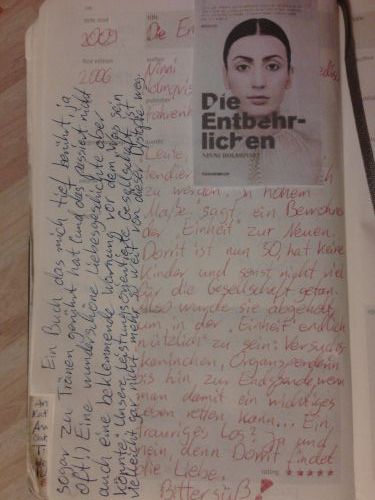 date read
2009
title
Die En
first edition
2006
author
Ninni
Die
Entbehr-
lichen
NINNI HOLMQVIST
Leute,
zu werden." In hohem
Maße, sagt ein Bewohner
der Einheit zur Neuen.
Dorrit ist nun 50, hat keine
Kinder und sonst nicht viel
für die Gesellschaft getan.
Also wurde sie abgeholt
um, in der "Einheit" endlich
nützlich zu sein: Versuchs
kaninchen, Organspenderin
bis hin zur Endspende, wenn
man damit ein wichtiges
Leben retten kann... Ein
trauriges Los? Ja und
nein, denn Dorrit findet
die Liebe.
rating
Bittersüß
Ein Buch das mich tief berührt, ja
sogar zu Tränen gerührt hat (und das passiert nicht
oft!) Eine wunderschöne Liebesgeschichte aber
auch eine beklemmende Warnung vor dem was sein
könnte: Unsere leistungsorientierte Gesellschaft ist
vielleicht gar nicht mehr so weit von dieser Dystopie weg.